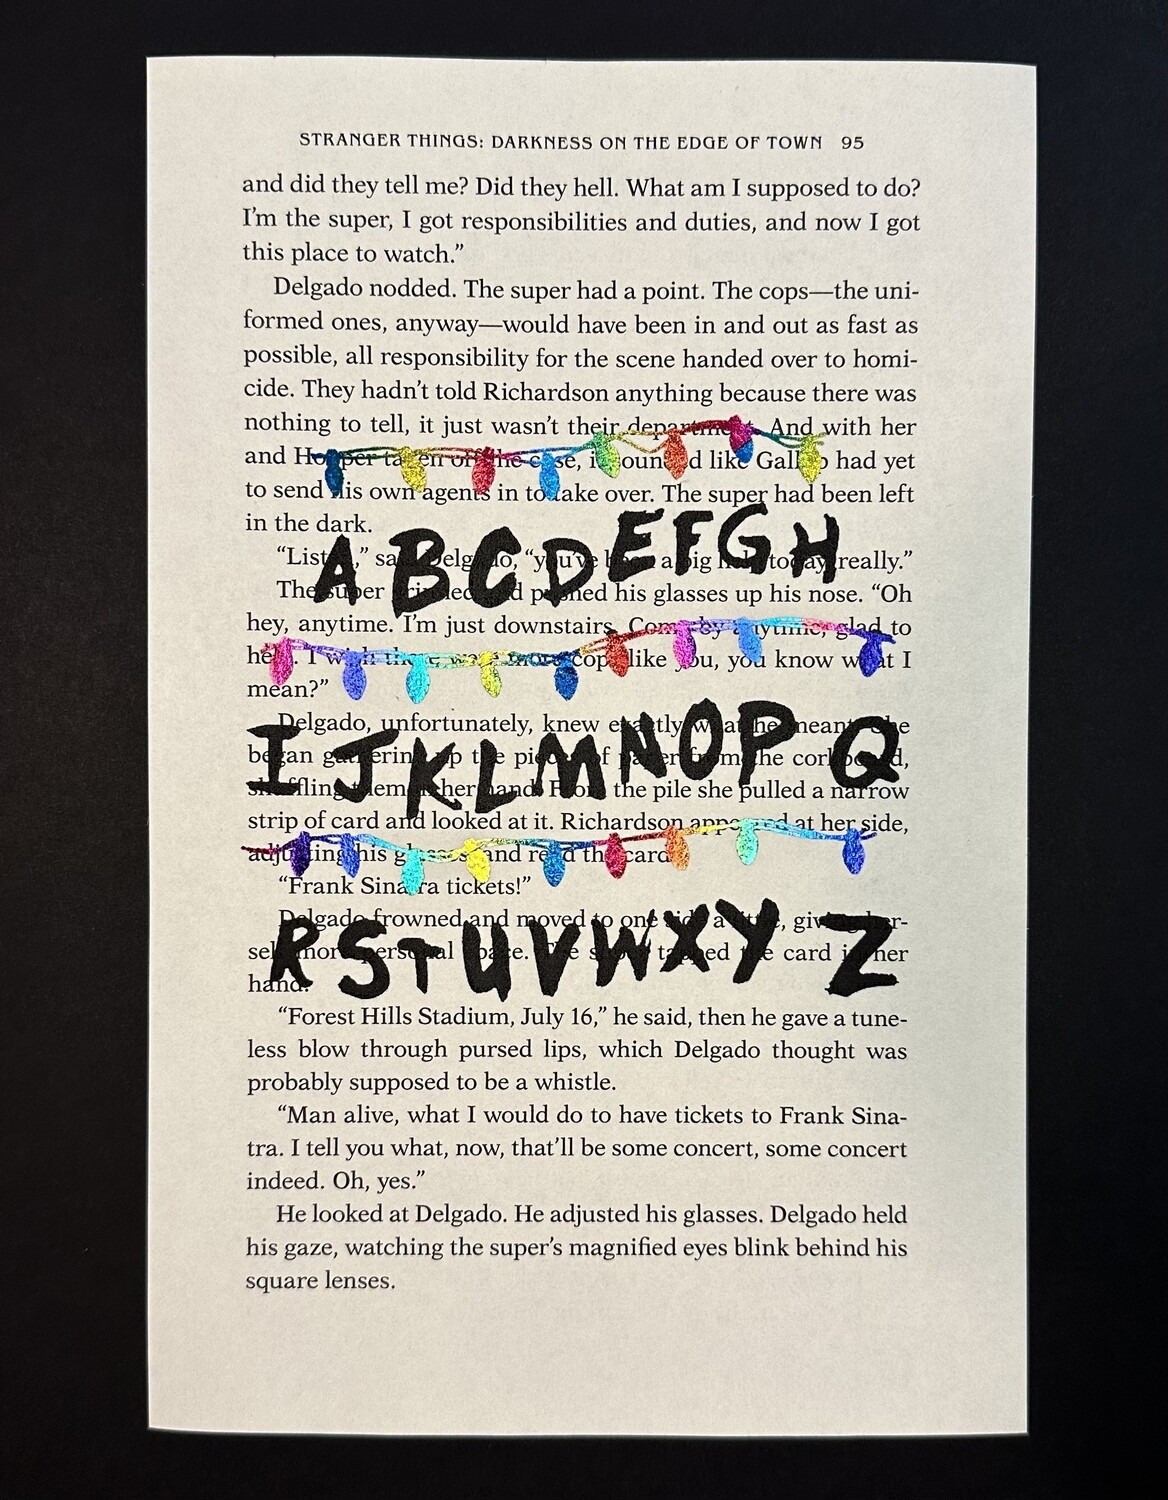 STRANGER THINGS: DARKNESS ON THE EDGE OF TOWN 95
and did they tell me? Did they hell. What am I supposed to do?
I'm the super, I got responsibilities and duties, and now I got
this place to watch.”
Delgado nodded. The super had a point. The cops—the uni-
formed ones, anyway—would have been in and out as fast as
possible, all responsibility for the scene handed over to homi-
cide. They hadn't told Richardson anything because there was
nothing to tell, it just wasn't their department. And with her
and Hopper taken off the case, it sounded like Gallup had yet
to send his own agents in to take over. The super had been left
in the dark.
A B C D E F G H
“Listen,” said Delgado, “you've been a big help today, really.”
The super grinned and pushed his glasses up his nose. “Oh
hey, anytime. I'm just downstairs. Come by anytime, glad to
help. I wish there were more cops like you, you know what I
mean?”
I J K L M N O P Q
Delgado, unfortunately, knew exactly what he meant. She
began gathering up the pieces of paper from the corkboard,
shuffling them in her hand. From the pile she pulled a narrow
strip of card and looked at it. Richardson appeared at her side,
adjusting his glasses and read the card.
“Frank Sinatra tickets!”
R S T U V W X Y Z
Delgado frowned and moved to one side a little, giving her-
self more personal space. The super tapped the card in her
hand.
“Forest Hills Stadium, July 16,” he said, then he gave a tune-
less blow through pursed lips, which Delgado thought was
probably supposed to be a whistle.
“Man alive, what I would do to have tickets to Frank Sina-
tra. I tell you what, now, that'll be some concert, some concert
indeed. Oh, yes.”
He looked at Delgado. He adjusted his glasses. Delgado held
his gaze, watching the super's magnified eyes blink behind his
square lenses.